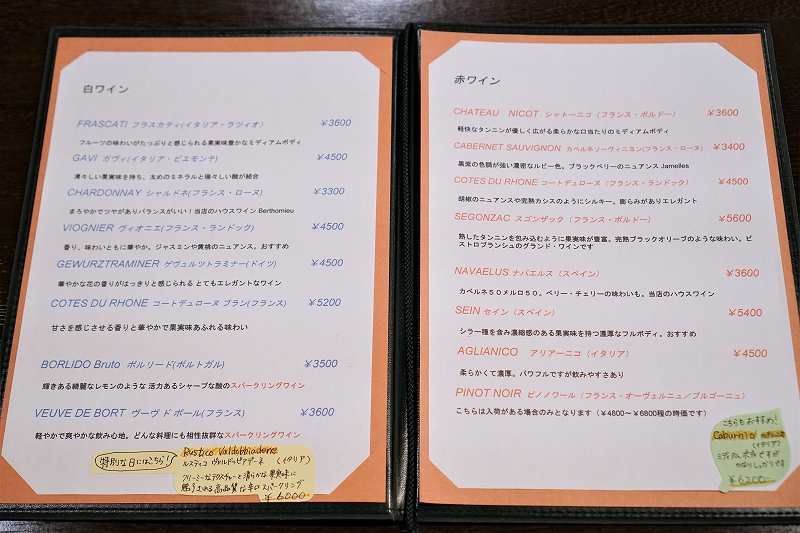 白ワイン
FRASCATI フラスカティ(イタリア・ラツィオ) ¥3600
フルーツの味わいがたっぷりと感じられる果実味豊かなミディアムボディ
GAVI ガヴィ(イタリア・ピエモンテ) ¥4500
清々しい果実味を持ち、太めのミネラルと瑞々しい酸が結合
CHARDONNAY シャルドネ(フランス・ローヌ) ¥3300
まろやかでツヤがありバランスがいい!当店のハウスワイン Berthomieu
VIOGNIER ヴィオニエ(フランス・ランドック) ¥4500
香り、味わいともに華やか。ジャスミンや黄桃のニュアンス。おすすめ
GEWURZTRAMINER ゲヴュルツトラミナー(ドイツ) ¥4500
華やかな花の香りがはっきりと感じられる とてもエレガントなワイン
COTES DU RHONE コートデュローヌ ブラン(フランス) ¥5200
甘さを感じさせる香りと華やかで果実味あふれる味わい
BORLIDO Bruto ボルリード(ポルトガル) ¥3500
輝きある綺麗なレモンのような 活力あるシャープな酸のスパークリングワイン
VEUVE DE BORT ヴーヴ ド ボール(フランス) ¥3600
軽やかで爽やかな飲み心地。どんな料理にも相性抜群なスパークリングワイン
特別な日にはこちら!
Rustico Valdobbiadene
ルスティコ ヴァルドッビアデーネ (イタリア)
クリーミーなテクスチャーと清らかな果実味に
魅了される高品質な辛のスパークリング
¥6000
赤ワイン
CHATEAU NICOT シャトーニコ(フランス・ボルドー) ¥3600
軽快なタンニンが優しく広がる柔らかな口当たりのミディアムボディ
CABERNET SAUVIGNON カベルネソーヴィニヨン(フランス・ローヌ) ¥3400
黒紫の色調が強い濃密なルビー色。ブラックベリーのニュアンス Jamelles
COTES DU RHONE コートデュローヌ(フランス・ランドック) ¥4500
胡椒のニュアンスや完熟カシスのようにシルキー。膨らみがありエレガント
SEGONZAC スゴンザック(フランス・ボルドー) ¥5600
熟したタンニンを包み込むように果実味が豊富。完熟ブラックオリーブのような味わい。ビ
ストロブランシュのグランド・ワインです
NAVAELUS ナバエルス(スペイン) ¥3600
カベルネ50メルロ50。ベリー・チェリーの味わいも。当店のハウスワイン
SEIN セイン(スペイン) ¥5400
シラー種を含み凝縮感のある果実味を持つ濃厚なフルボディ。おすすめ
AGLIANICO アリアーニコ(イタリア) ¥4500
柔らかくて濃厚。パワフルですが飲みやすさあり
PINOT NOIR ピノノワール(フランス・オーヴェルニュ/ブルゴーニュ)
こちらは入荷がある場合のみとなります(¥4800~¥6800程の時価です)
こちらもおすすめ!
Caburnio
(イタリア)
ミディアムボディですが
かなりしっかりです
¥6200